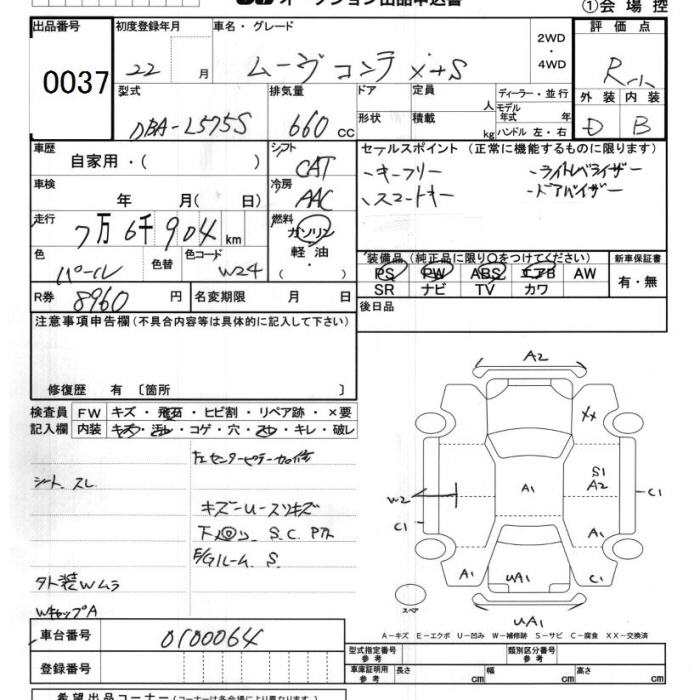 ①会場控
出品番号 初度登録年月 車名・グレード 評価点
0037 22 月 ムーヴ コンテ X+S 2WD・4WD R
型式 排気量 ドア 定員 ディーラー・並行 外装 内装
形状 積載 人 モデル年式 年 D B
DBA-L575S 660 cc kg ハンドル 左・右
車歴 シフト セールスポイント (正常に機能するものに限ります)
自家用・( ) CAT -キーフリー -ライトレベライザー
車検 冷房 -ドアバイザー
年 月( 日) AAC
走行 燃料
7万6千904km ガソリン
軽油
・
( )
色 色替 色コード 装備品(純正品に限り○をつけてください) 新車保証書
パール W24 PS PW ABS エアB AW 有・無
SR ナビ TV カワ
R券 8960 円 名変期限 月 日 後日品
注意事項申告欄(不具合内容等は具体的に記入して下さい)
修復歴 有〔箇所 〕
検査員 FW キズ・飛石・ヒビ割・リペア跡・×要
記入欄 内装 キズ・汚レ・コゲ・穴・スレ・キレ・破レ
シート スレ
外装Wムラ
WキャップA
キズーUースリキズ
S.C.
E/Gルーム S.
A2
XX
S1
A2
A1
W2
C1
C1
A1
A1
UA1
C1
スペア
UA1
A-キズ E-エクボ U-凹み W-補修跡 S-サビ C-腐食 XX-交換済
車台番号 0100064 型式指定番号 参考 類別区分番号 参考
登録番号 車庫証明用 参考 長さ cm 幅 cm 高さ cm
希望出品コーナー